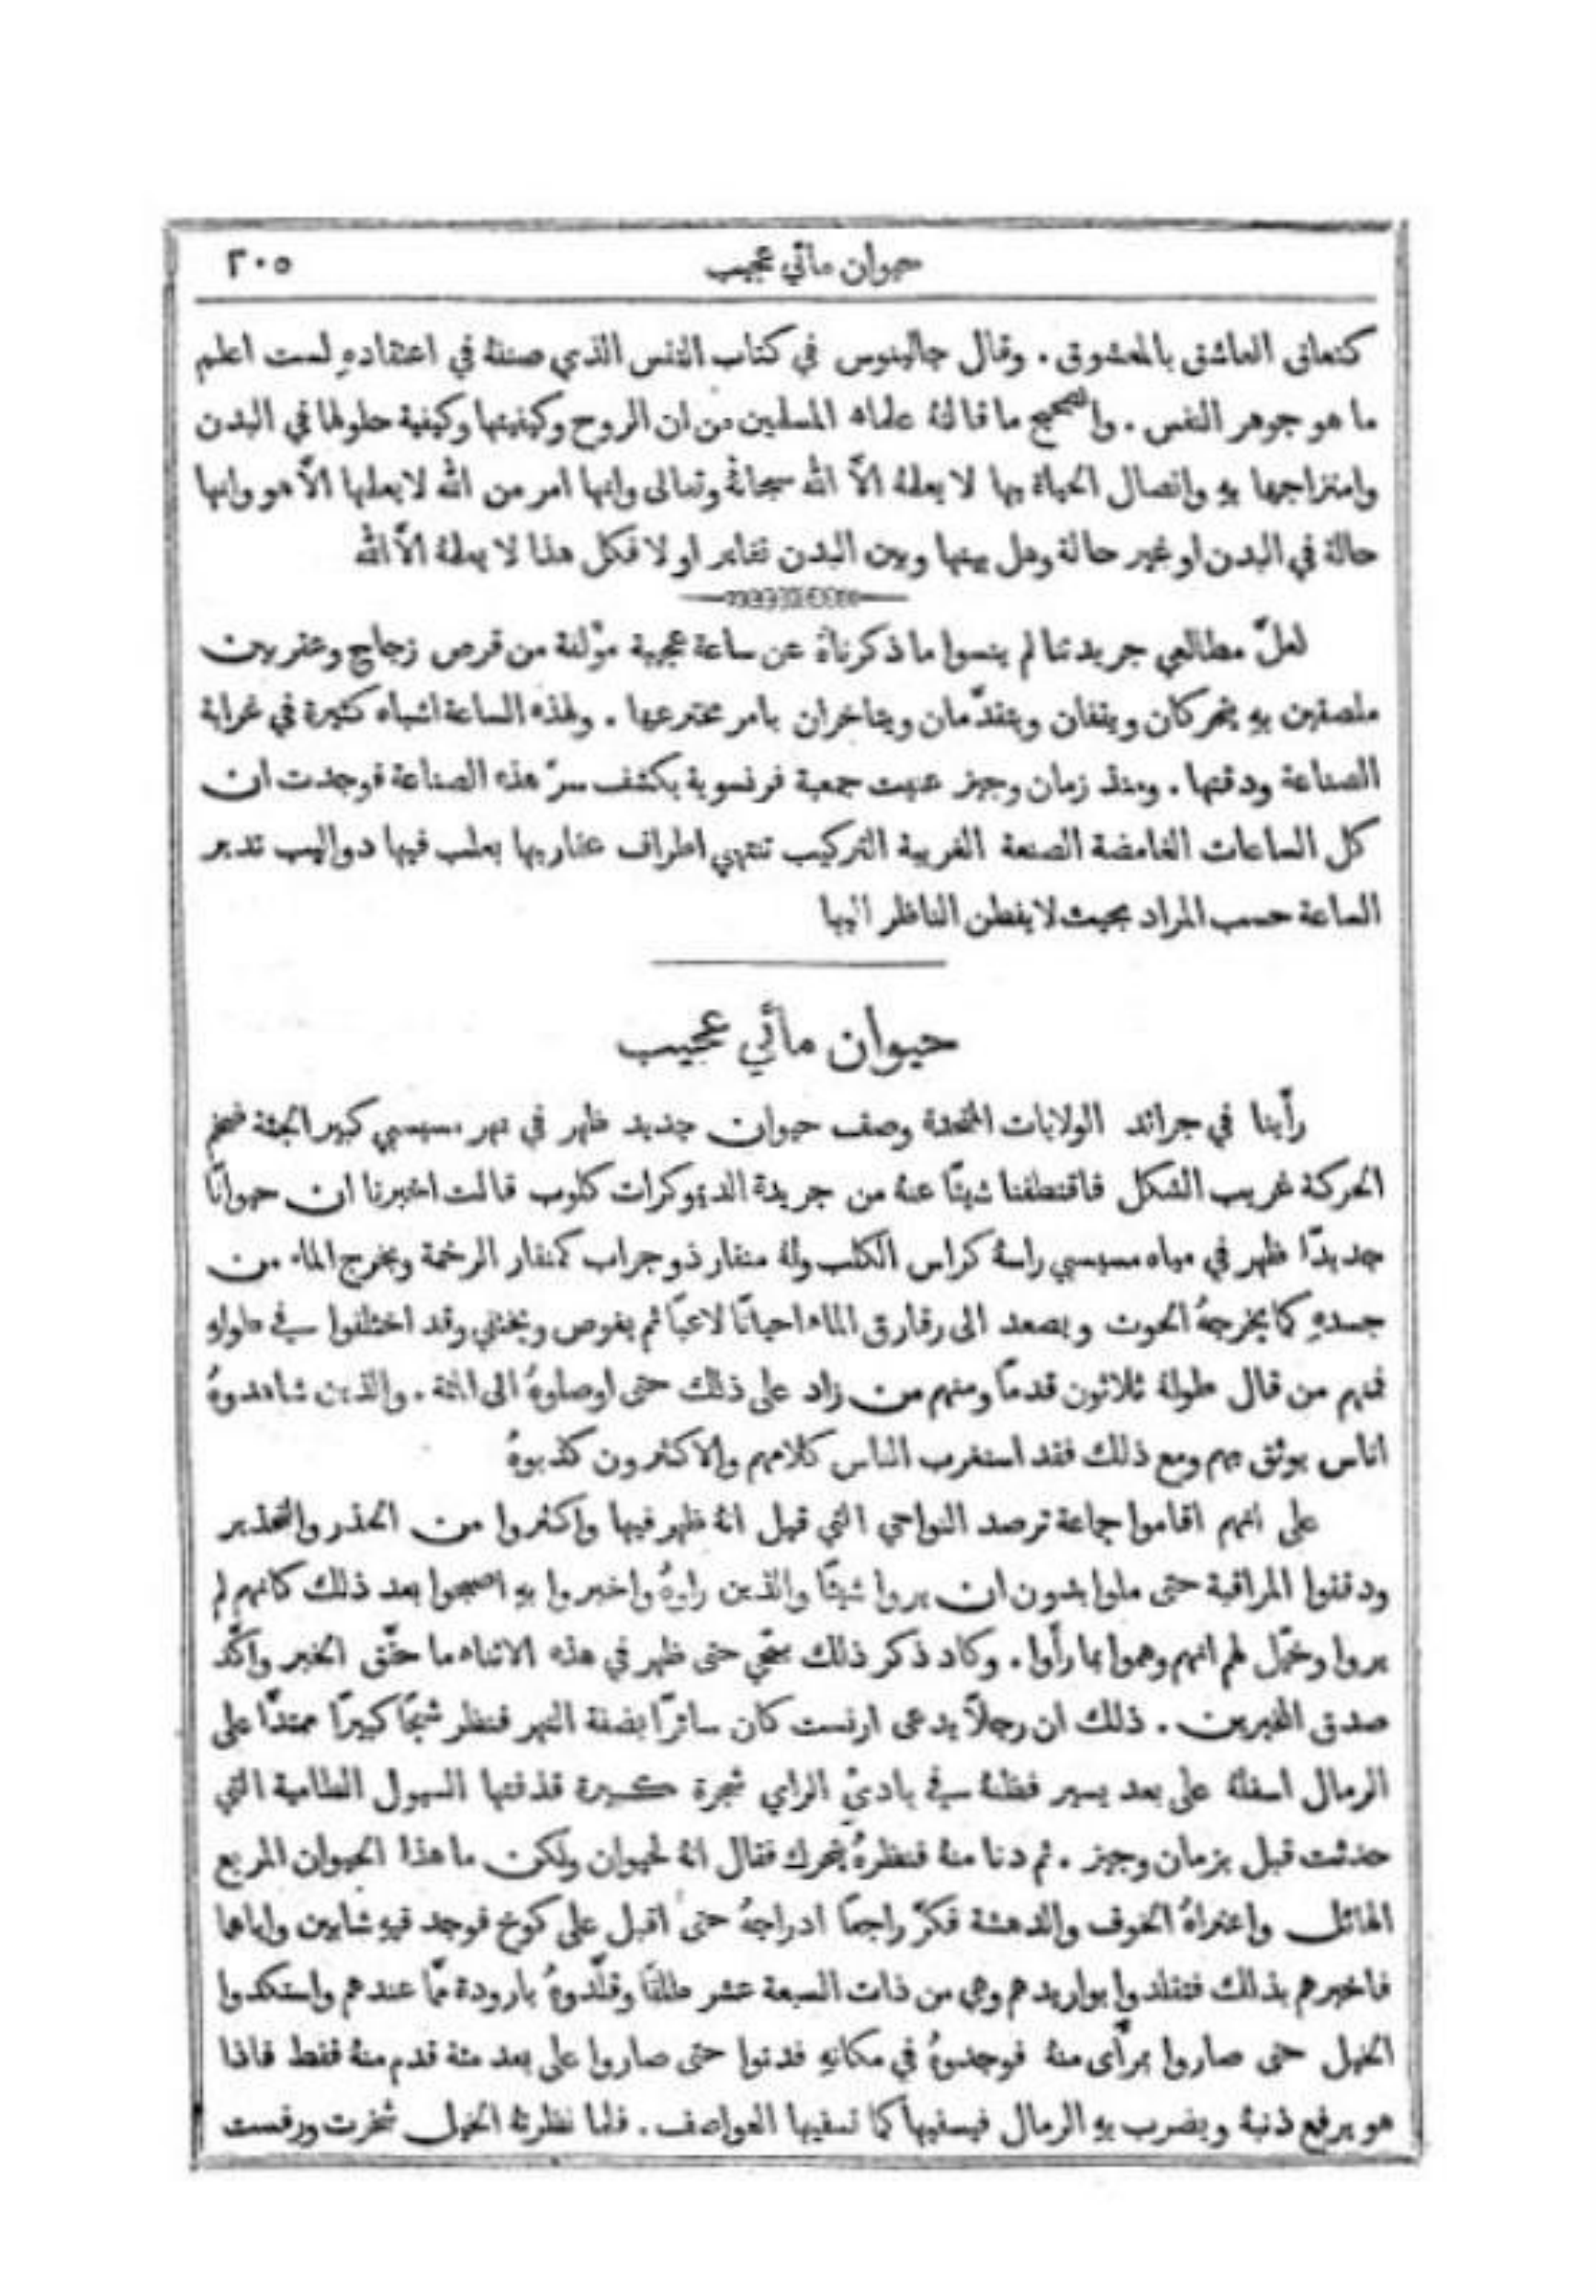 حيوان مائي عجيب ٢٠٥
كتعلق العاشق بالمعشوق . وقال جالينوس في كتاب النفس الذي صنفهُ في اعتقادهِ لست اعلم
ما هو جوهر النفس . والصحيح ما قالهُ علماء المسلمين من ان الروح وكيفيتها وكيفية حلولها في البدن
وامتزاجها بهِ واتصال الحياة بها لا يعلمهُ الاَّ الله سبحانهُ وتعالى وانها امر من الله لا يعلمها الاَّ هو وانها
حالة في البدن او غير حالة وهل بينها وبين البدن تغاير او لا فكل هذا لا يعلمهُ الاَّ الله
لعلَّ مطالعي جريدتنا لم ينسوا ما ذكرناهُ عن ساعة عجيبة مؤلفة من قرص زجاج وعقربين
ملصقين بهِ يتحركان ويقفان ويتقدَّمان ويتأخران بامر مخترعها . ولهذه الساعة اشباه كثيرة في غرابة
الصناعة ودقتها . ومنذ زمان وجيز عنيت جمعية فرنسوية بكشف سرّ هذه الصناعة فوجدت ان
كل الساعات الغامضة الصنعة الغريبة التركيب تنتهي اطراف عقاربها بعلب فيها دواليب تدير
الساعة حسب المراد بحيث لا يفطن الناظر اليها
حيوان مائي عجيب
رأينا في جرائد الولايات المتحدة وصف حيوان جديد ظهر في نهر مسيسبي كبير الجثة ضخم
الحركة غريب الشكل فاقتطفنا شيئًا عنهُ من جريدة الديوكرات كلوب قالت اخبرنا ان حيوانًا
جديدًا ظهر في مياه مسيسبي راسهُ كراس الكلب ولهُ منقار ذو جراب كمنقار الرخمة ويخرج الماء من
جسدهِ كما يخرجهُ الحوت ويصعد الى رقارق الماء احيانًا لاعبًا ثم يغوص ويختفي وقد اختلفوا في طولهِ
فمنهم من قال طولهُ ثلاثون قدمًا ومنهم من زاد على ذلك حتى اوصلوهُ الى المئة . والذين شاهدوهُ
اناس يوثق بهم ومع ذلك فقد استغرب الناس كلامهم والاكثرون كذبوهُ
على انهم اقاموا جماعة ترصد النواحي التي قيل انهُ ظهر فيها واكثروا من الحذر والتحذير
ودققوا المراقبة حتى ملوا بدون ان يروا شيئًا والذين راوهُ واخبروا بهِ اصبحوا بعد ذلك كانهم لم
يروا وخيّل لهم انهم وهموا بما رأوا . وكاد ذكر ذلك يمحّي حتى ظهر في هذه الاثناء ما حقّق الخبر واكّد
صدق المخبرين . ذلك ان رجلاً يدعى ارنست كان سائرًا بضفة النهر فنظر شبحًا كبيرًا ممتدًّا على
الرمال اسفلهُ على بعد يسير فظنهُ في بادئ الراي شجرة كبيرة قذفتها السيول الطامية التي
حدثت قبل بزمان وجيز . ثم دنا منهُ فنظرهُ يتحرك فقال انهُ لحيوان ولكن ما هذا الحيوان المريع
الهائل واعتراهُ الخوف والدهشة فكرَّ راجعًا ادراجهُ حتى اقبل على كوخ فوجد فيهِ شابين واباها
فاخبرهم بذلك فتقلدوا بواريدهم وهي من ذات السبعة عشر طلقًا وقلّدوهُ بارودة ممّا عندهم واستكدوا
الخيل حتى صاروا بمرأى منهُ فوجدوهُ في مكانهِ فدنوا حتى صاروا على بعد مئة قدم منهُ فقط فاذا
هو يرفع ذنبهُ ويضرب بهِ الرمال فيسفيها كما تسفيها العواصف . فلما نظرتهُ الخيل شخرت ورفست